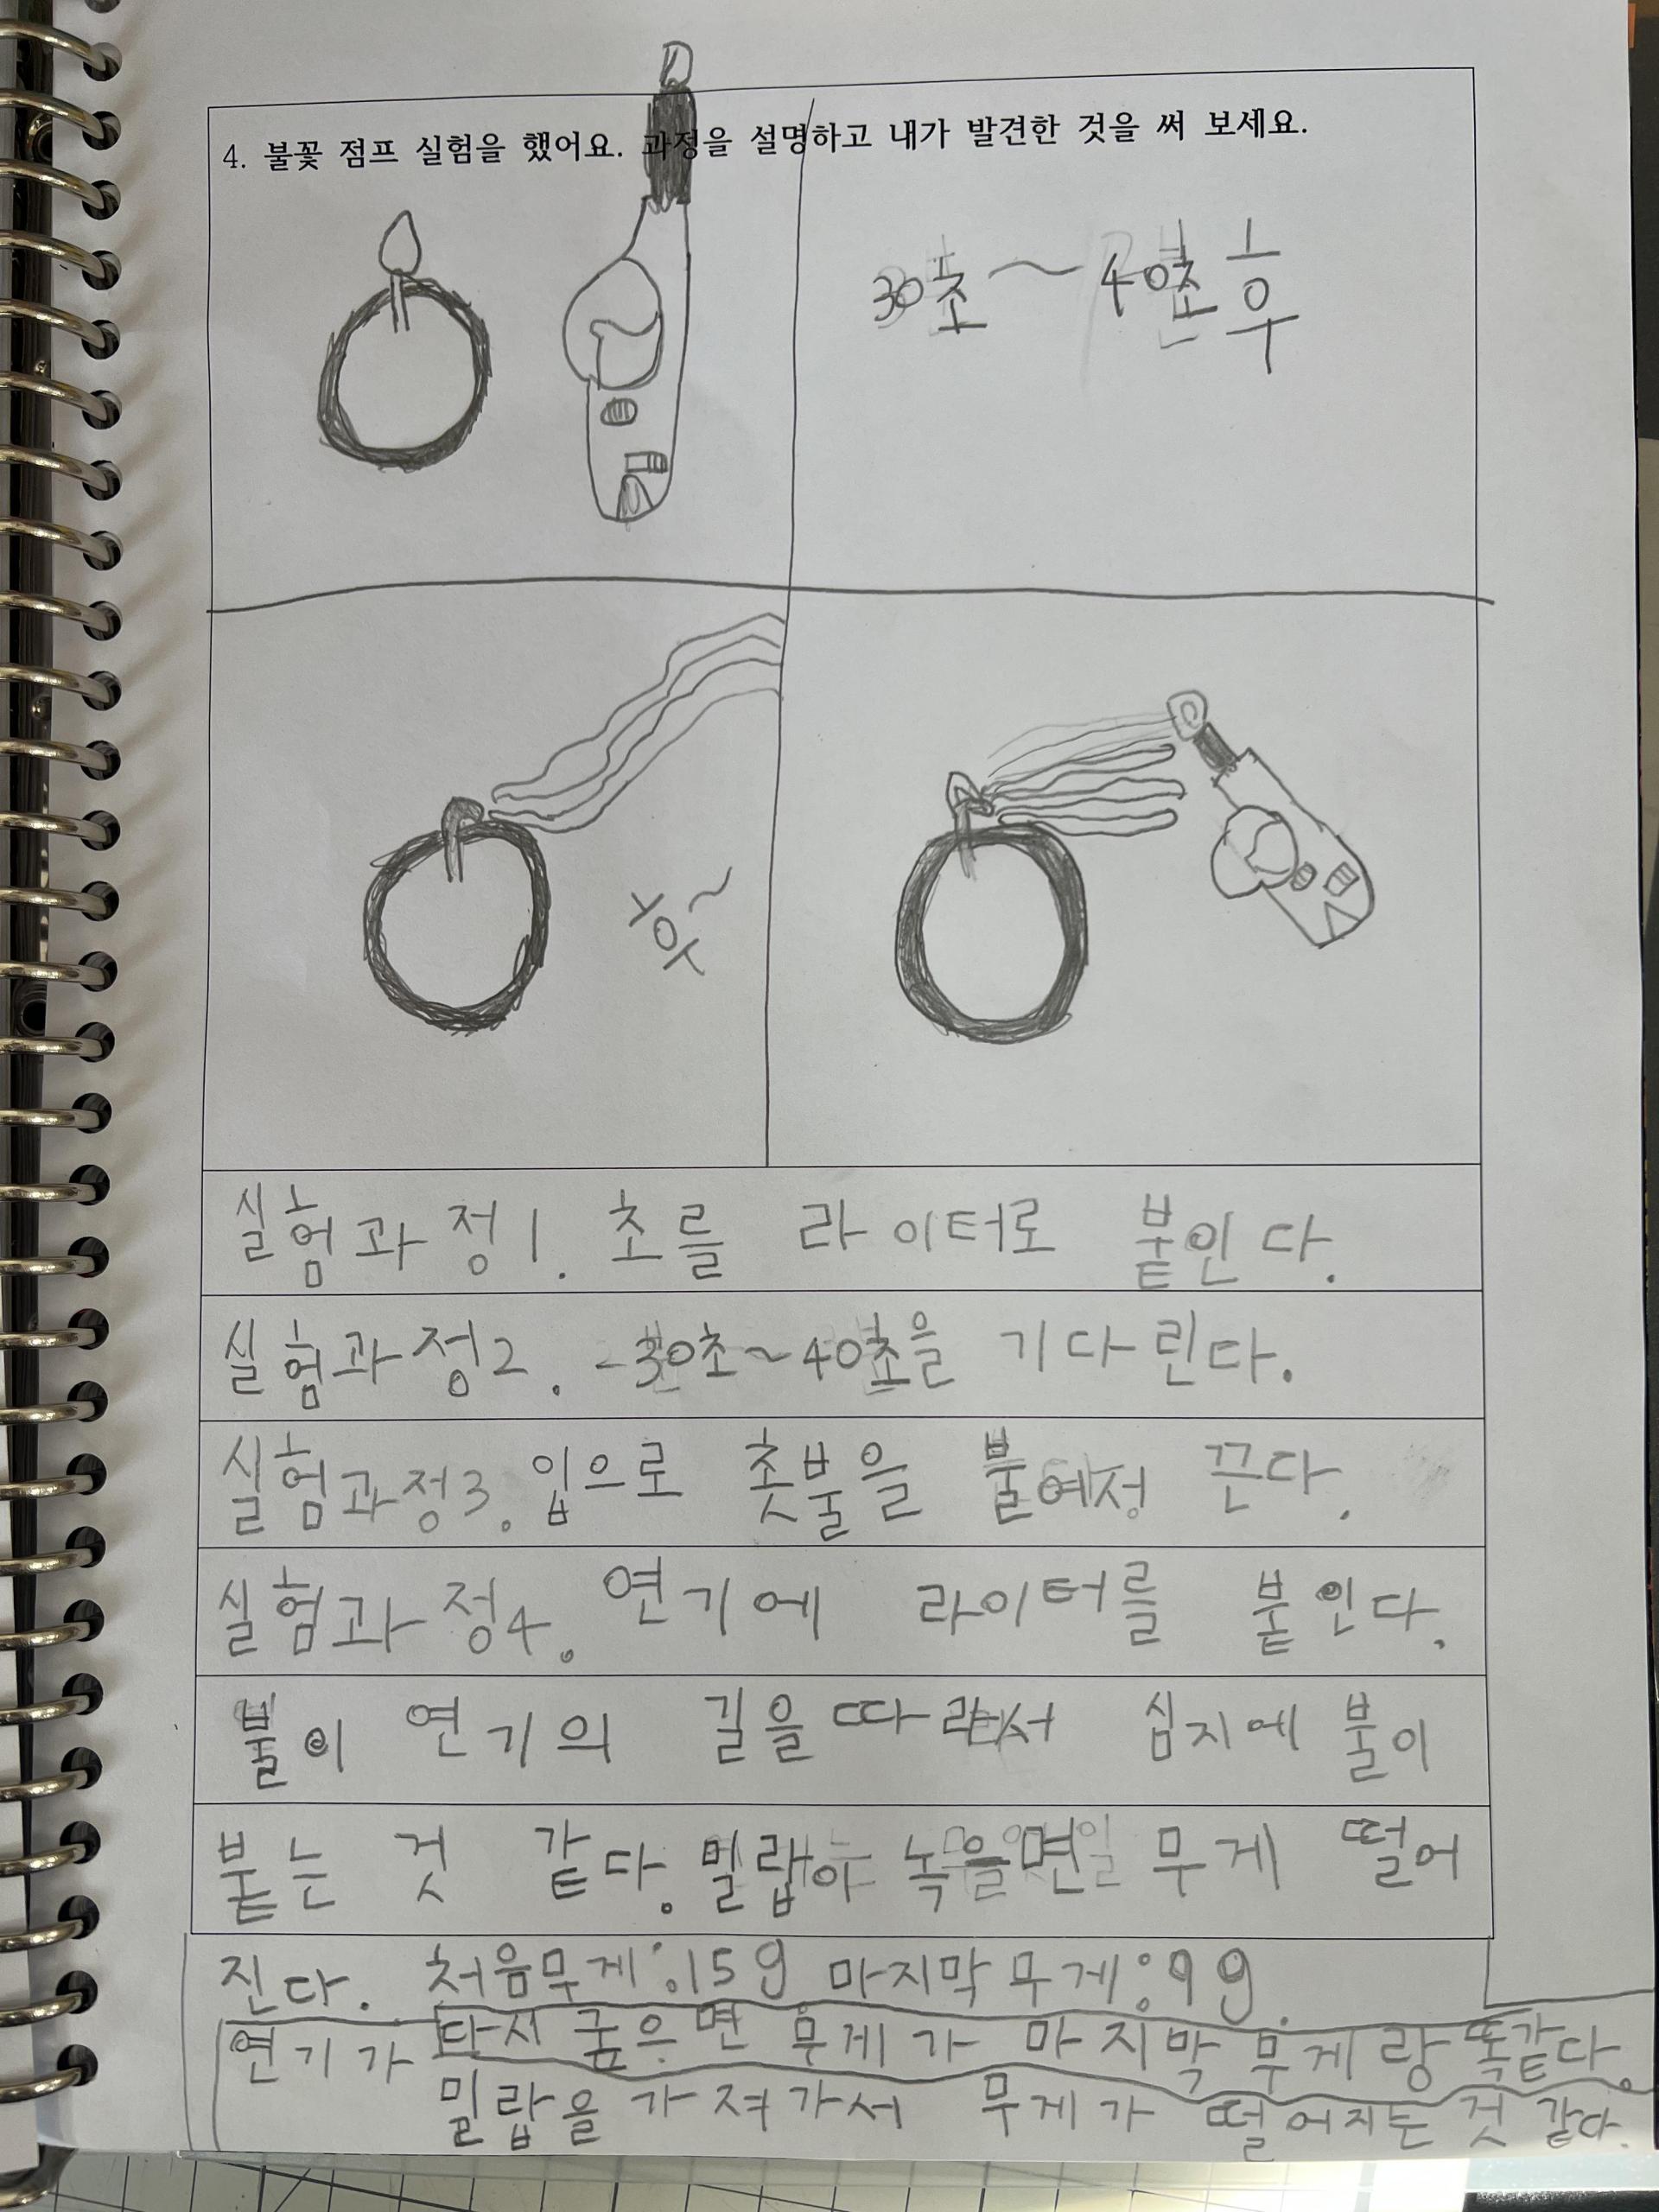 4. 불꽃 점프 실험을 했어요. 과정을 설명하고 내가 발견한 것을 써 보세요.
30초~40초 후
후~
실험과정1. 초를 라이터로 붙인다.
실험과정2. -30초~40초을 기다린다.
실험과정3. 입으로 촛불을 불여정 끈다.
실험과정4. 연기에 라이터를 붙인다.
불이 연기의 길을 따라서 심지에 불이
붙는 것 같다. 밀랍이 녹을면 무게 떨어
진다. 처음무게:15g 마지막 무게:9g.
다시 굶은면 무게가 마지막 무게랑 똑같다.
연기가 밀랍을 가져가서 무게가 떨어지는 것 같다.